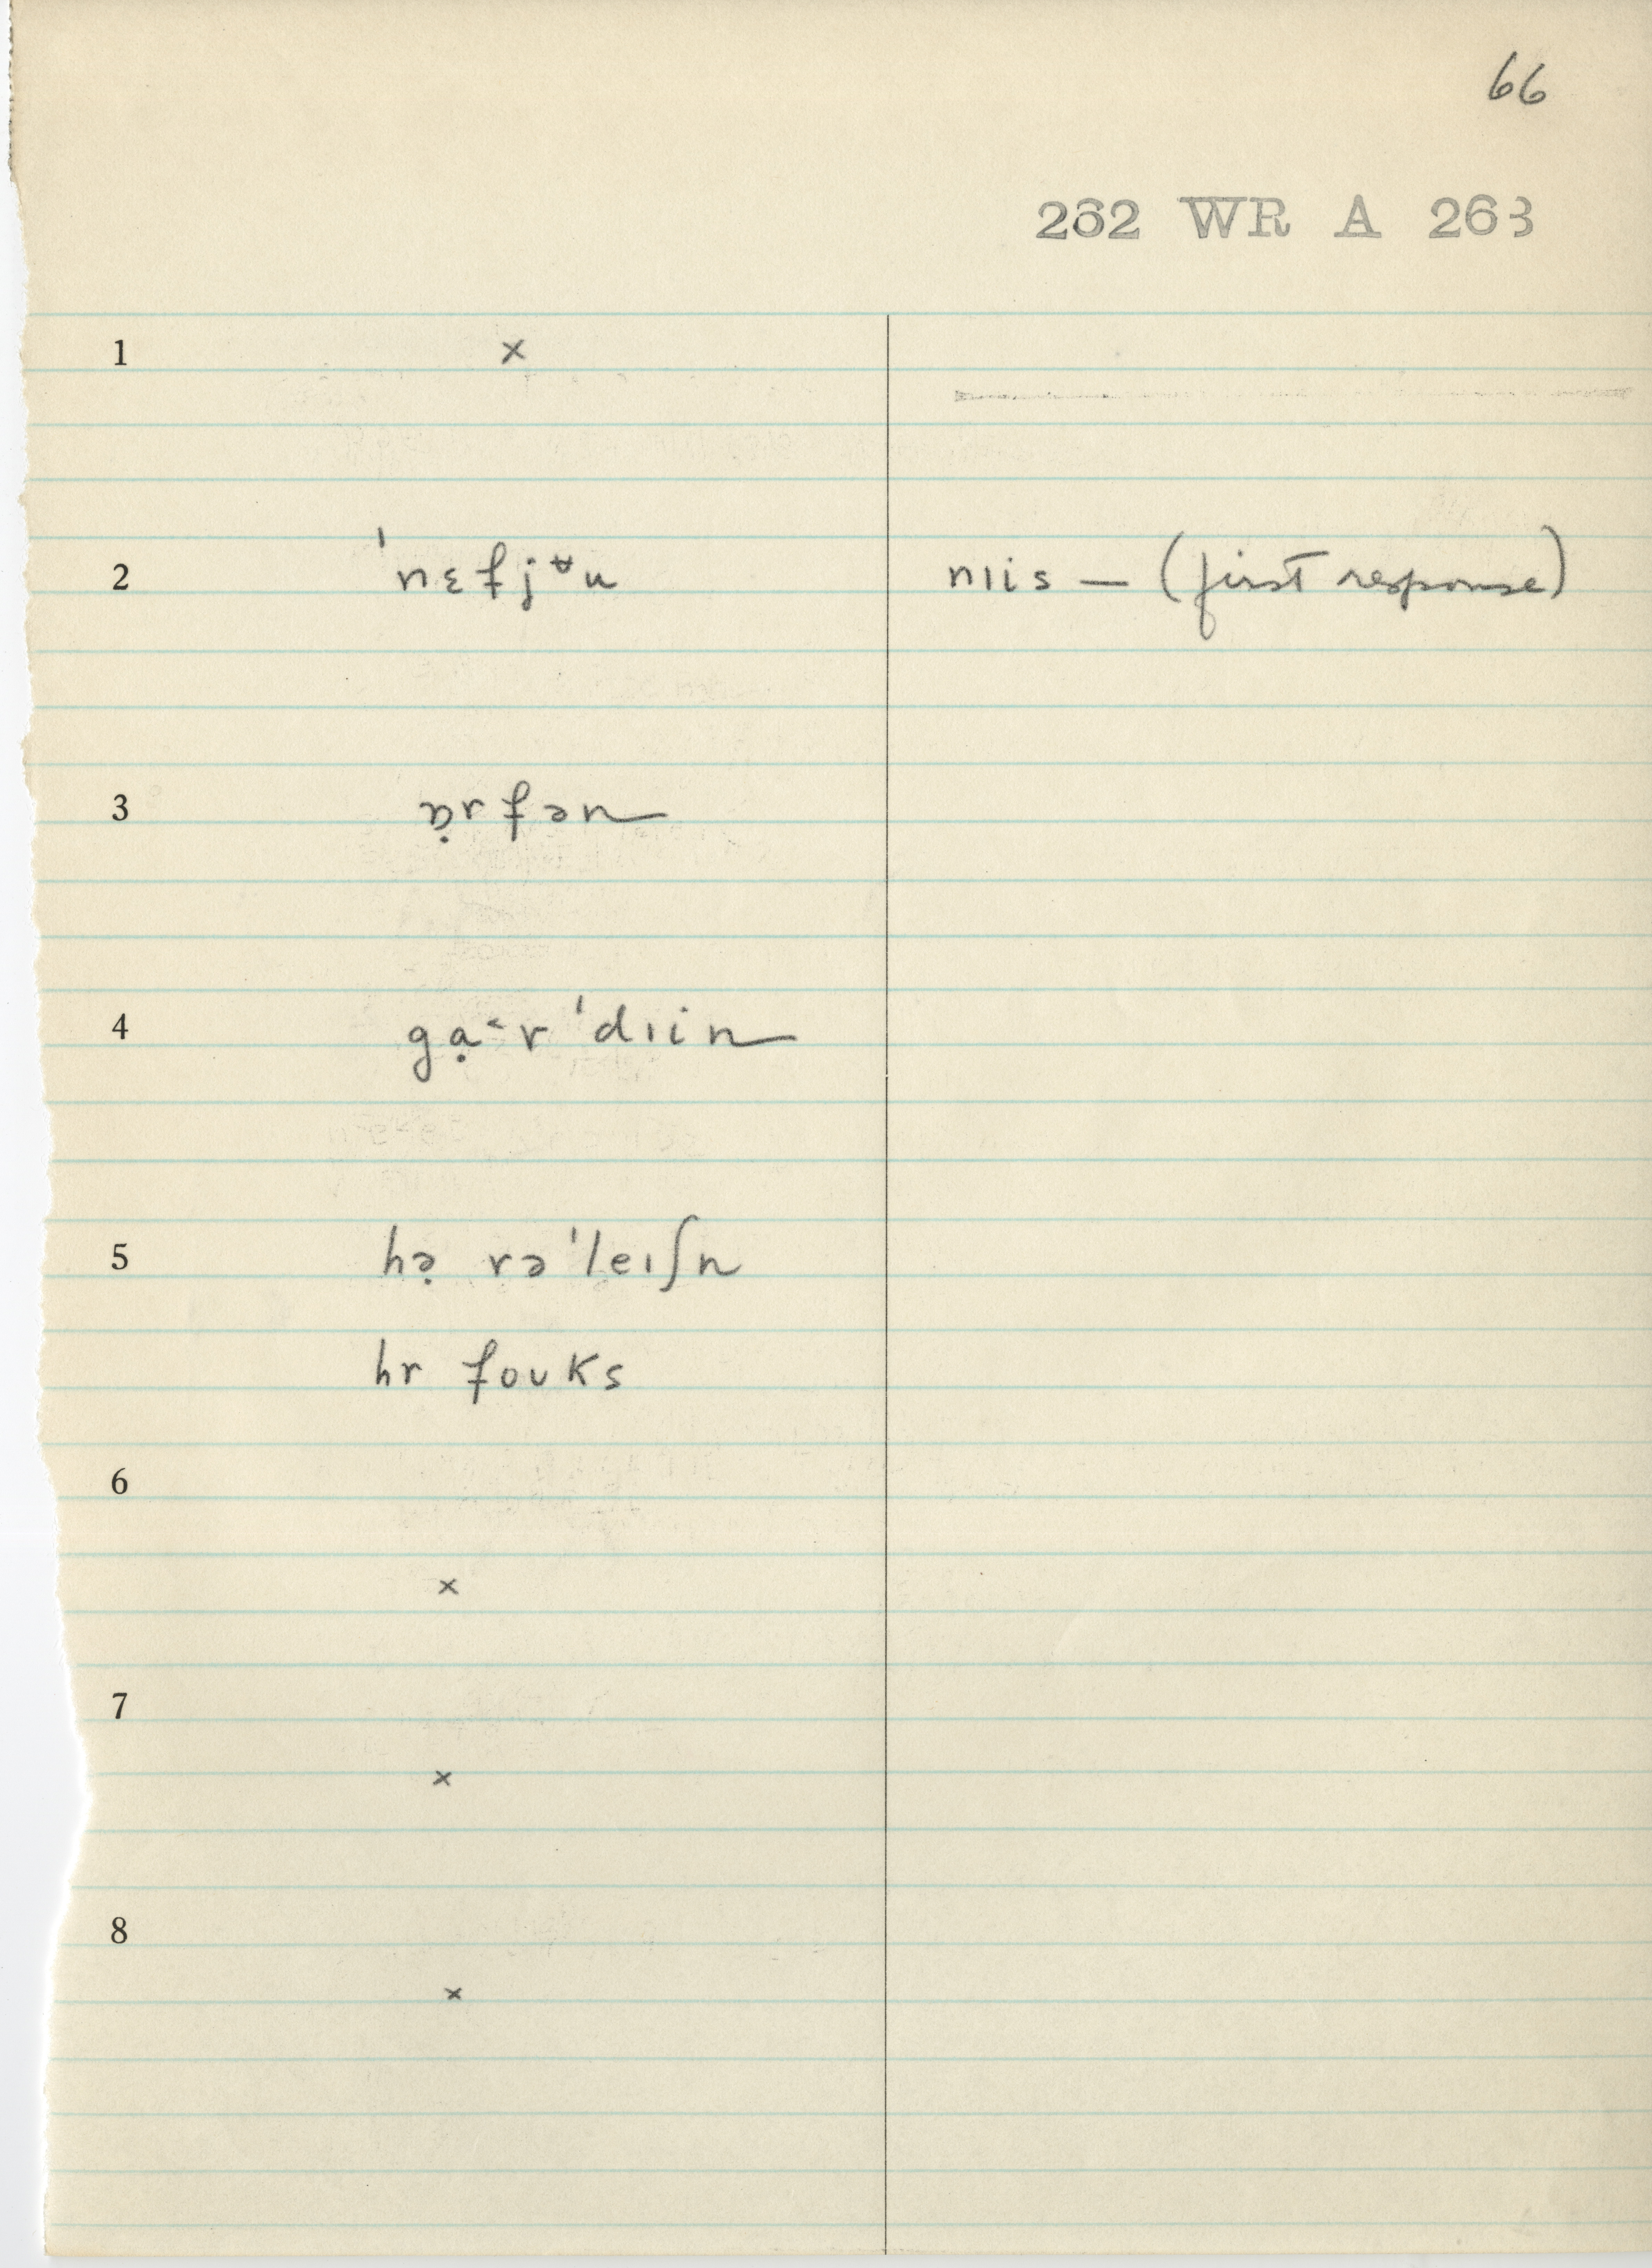 66
262 WR A 263
1 ×
2 ˈnɛfjᵿu nɪis — (first response)
3 ɒ̣rfən
4 gạ˂r ˈdɪin
5 hə̣ rəˈleɪʃn
hr foʊks
6
×
7
×
8
×